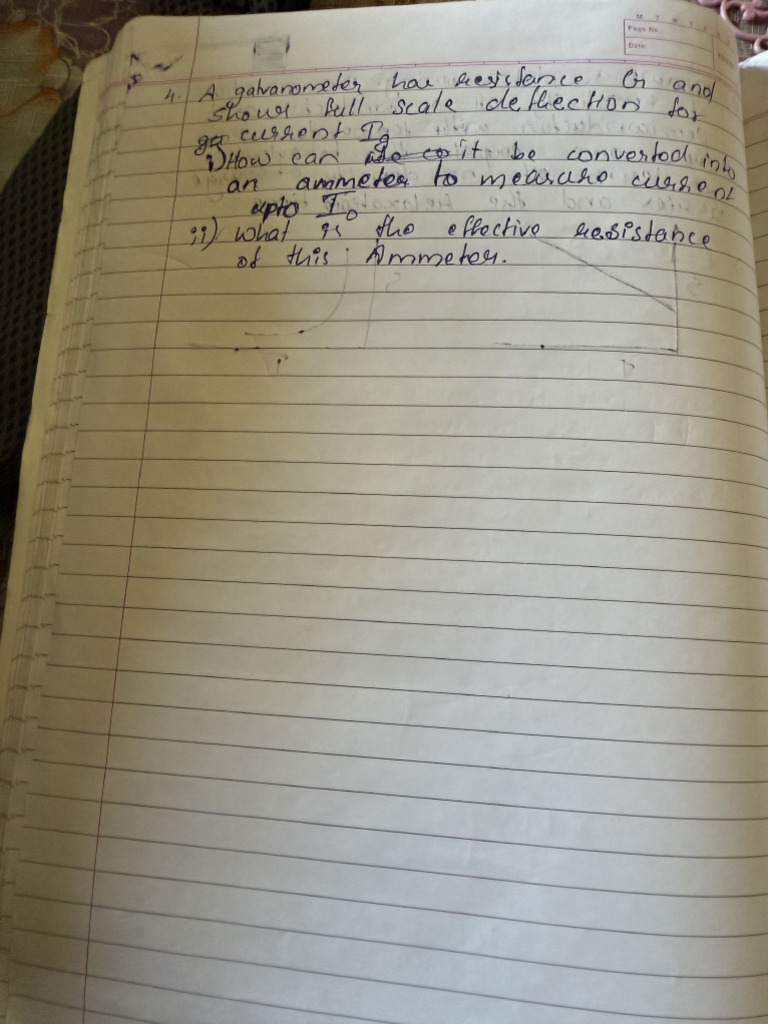 M T W T F
Page No.:
Date:
4. A galvanometer has resistance G and
shows full scale deflection for
current Ig
i) How can it be converted into
an ammeter to measure current
upto I₀
ii) What is the effective resistance
of this Ammeter.